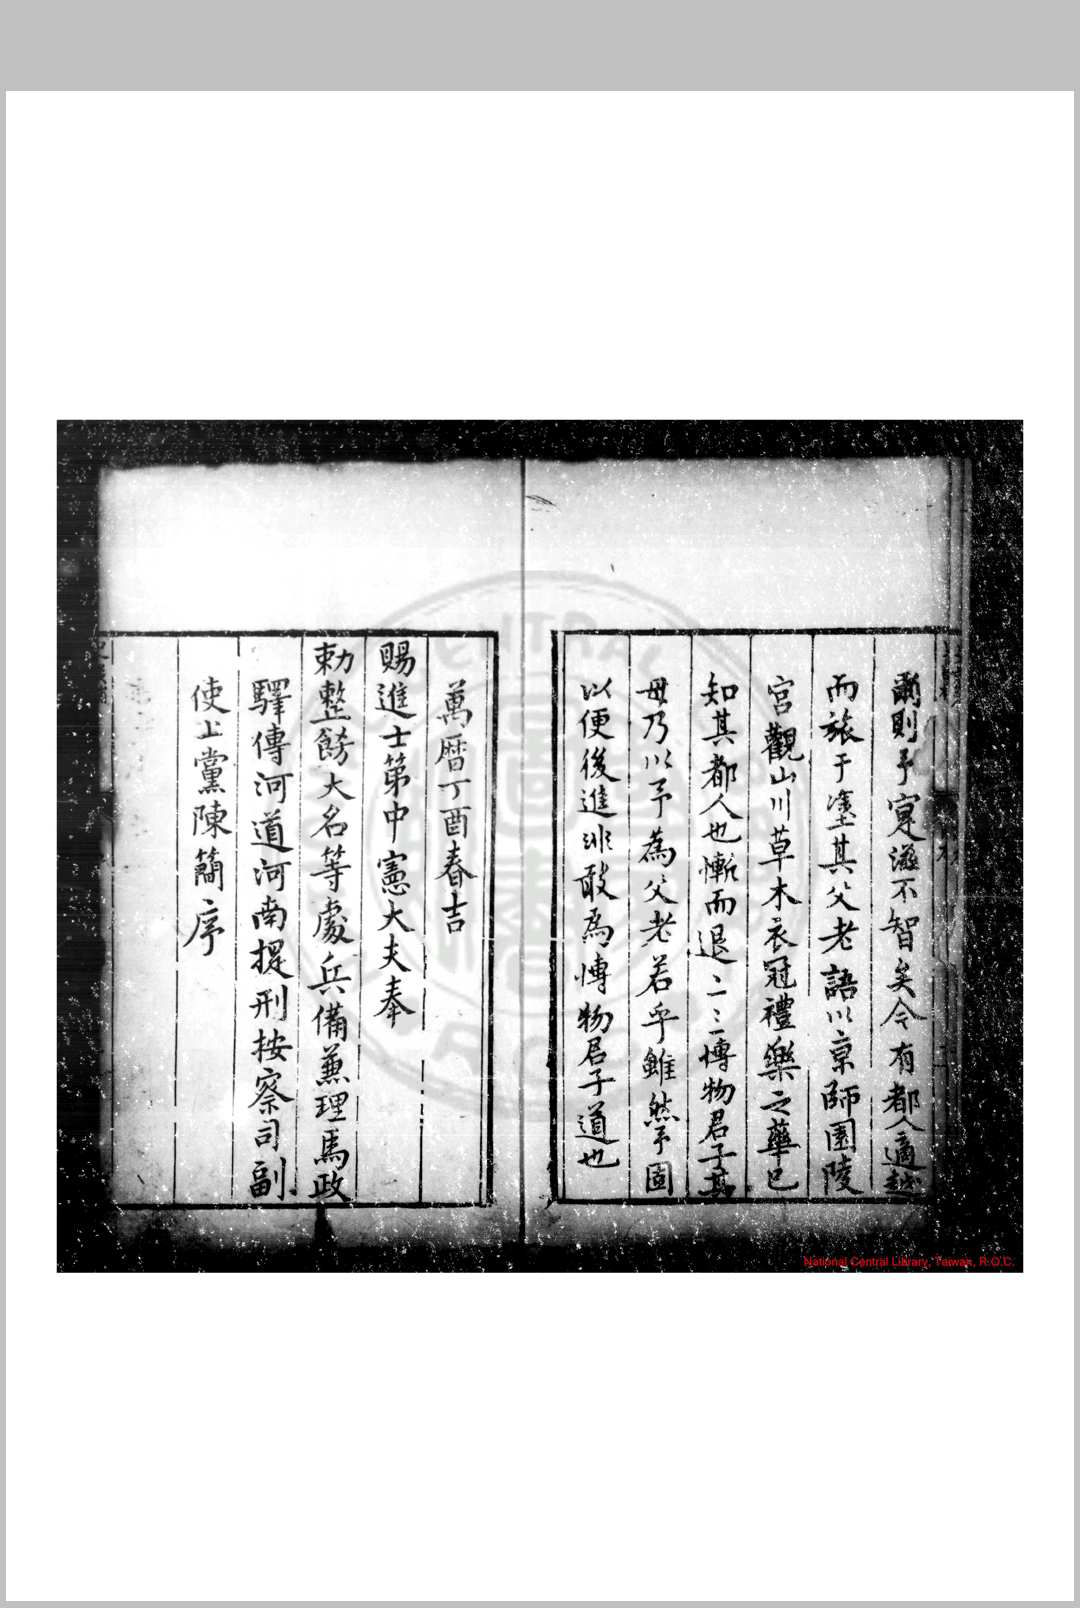 爾則予寔滋不智矣今有都人適越
而旅于塗其父老語以京師園陵
宮觀山川草木衣冠禮樂之華已
知其都人也慚而退〻〻博物君子其
毋乃以予為父老若乎雖然予固
以便後進非敢為博物君子道也
萬曆丁酉春吉
賜進士第中憲大夫奉
勅整飭大名等處兵備兼理馬政
驛傳河道河南提刑按察司副
使上黨陳簡序
National Central Library, Taiwan, R.O.C.